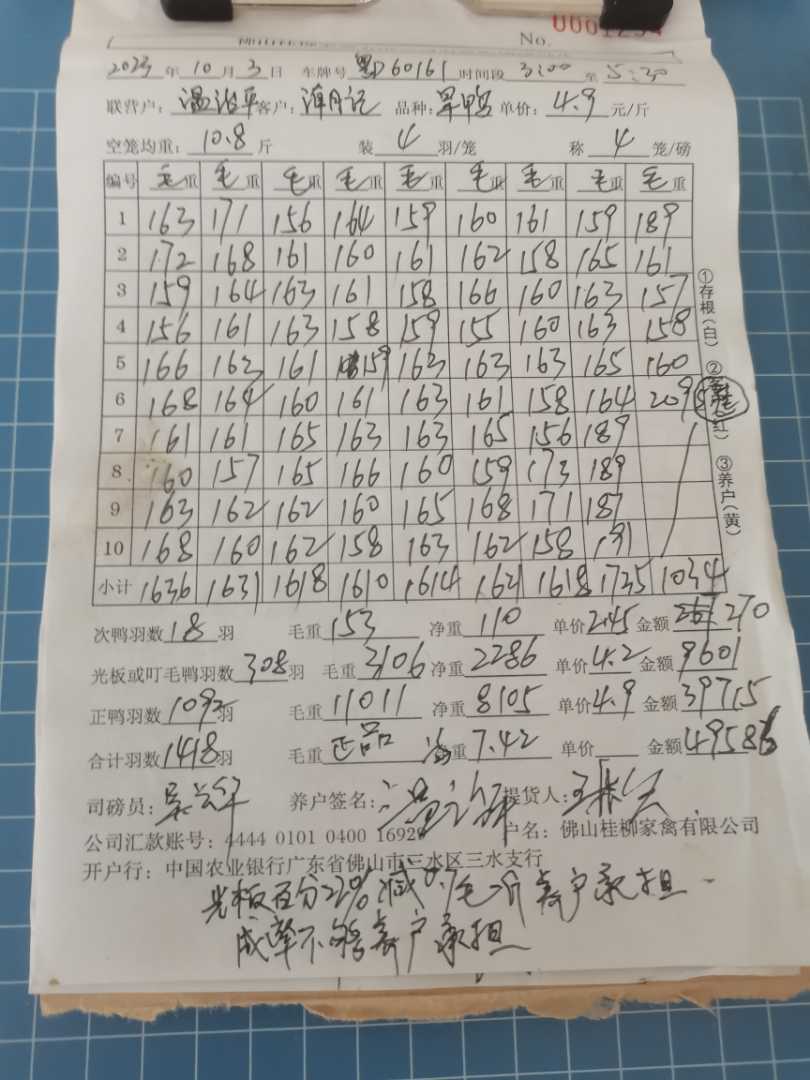 No. 0001254
2023年10月3日 车牌号 粤D60161 时间段 3:00 至 5:30
联营户: 温治平 客户: 潭月记 品种: 旱鸭 单价: 4.9 元/斤
空笼均重: 10.8 斤 装 4 羽/笼 称 4 笼/磅
编号 毛重 毛重 毛重 毛重 毛重 毛重 毛重 毛重 毛重
1 163 171 156 164 159 160 161 159 189
2 172 168 161 160 161 162 158 165 161
3 159 164 163 161 158 166 160 163 157
4 156 161 163 158 159 155 160 163 158
5 166 163 161 159 163 163 163 165 160
6 168 164 160 161 163 161 158 164 209
7 161 161 165 163 163 165 156 189
8 160 157 165 166 160 159 173 189
9 163 162 162 160 165 168 171 187
10 168 160 162 158 163 162 158 191
小计 1636 1631 1618 1610 1614 1621 1618 1735 1034
①存根(白) ② 红) ③养户(黄)
次鸭羽数 18 羽 毛重 153 净重 110 单价 2.45 金额 270
光板或叮毛鸭羽数 308 羽 毛重 3106 净重 2286 单价 4.2 金额 9601
正鸭羽数 1092 羽 毛重 11011 净重 8105 单价 4.9 金额 39715
合计羽数 1418 羽 毛重 正品 重 7.42 单价 金额 49586
司磅员: 养户签名: 提货人:
公司汇款账号: 4444 0101 0400 16929 户名: 佛山桂柳家禽有限公司
开户行: 中国农业银行广东省佛山市三水区三水支行
光板百分22% 减0.7毛 养户承担
成率不够养户承担